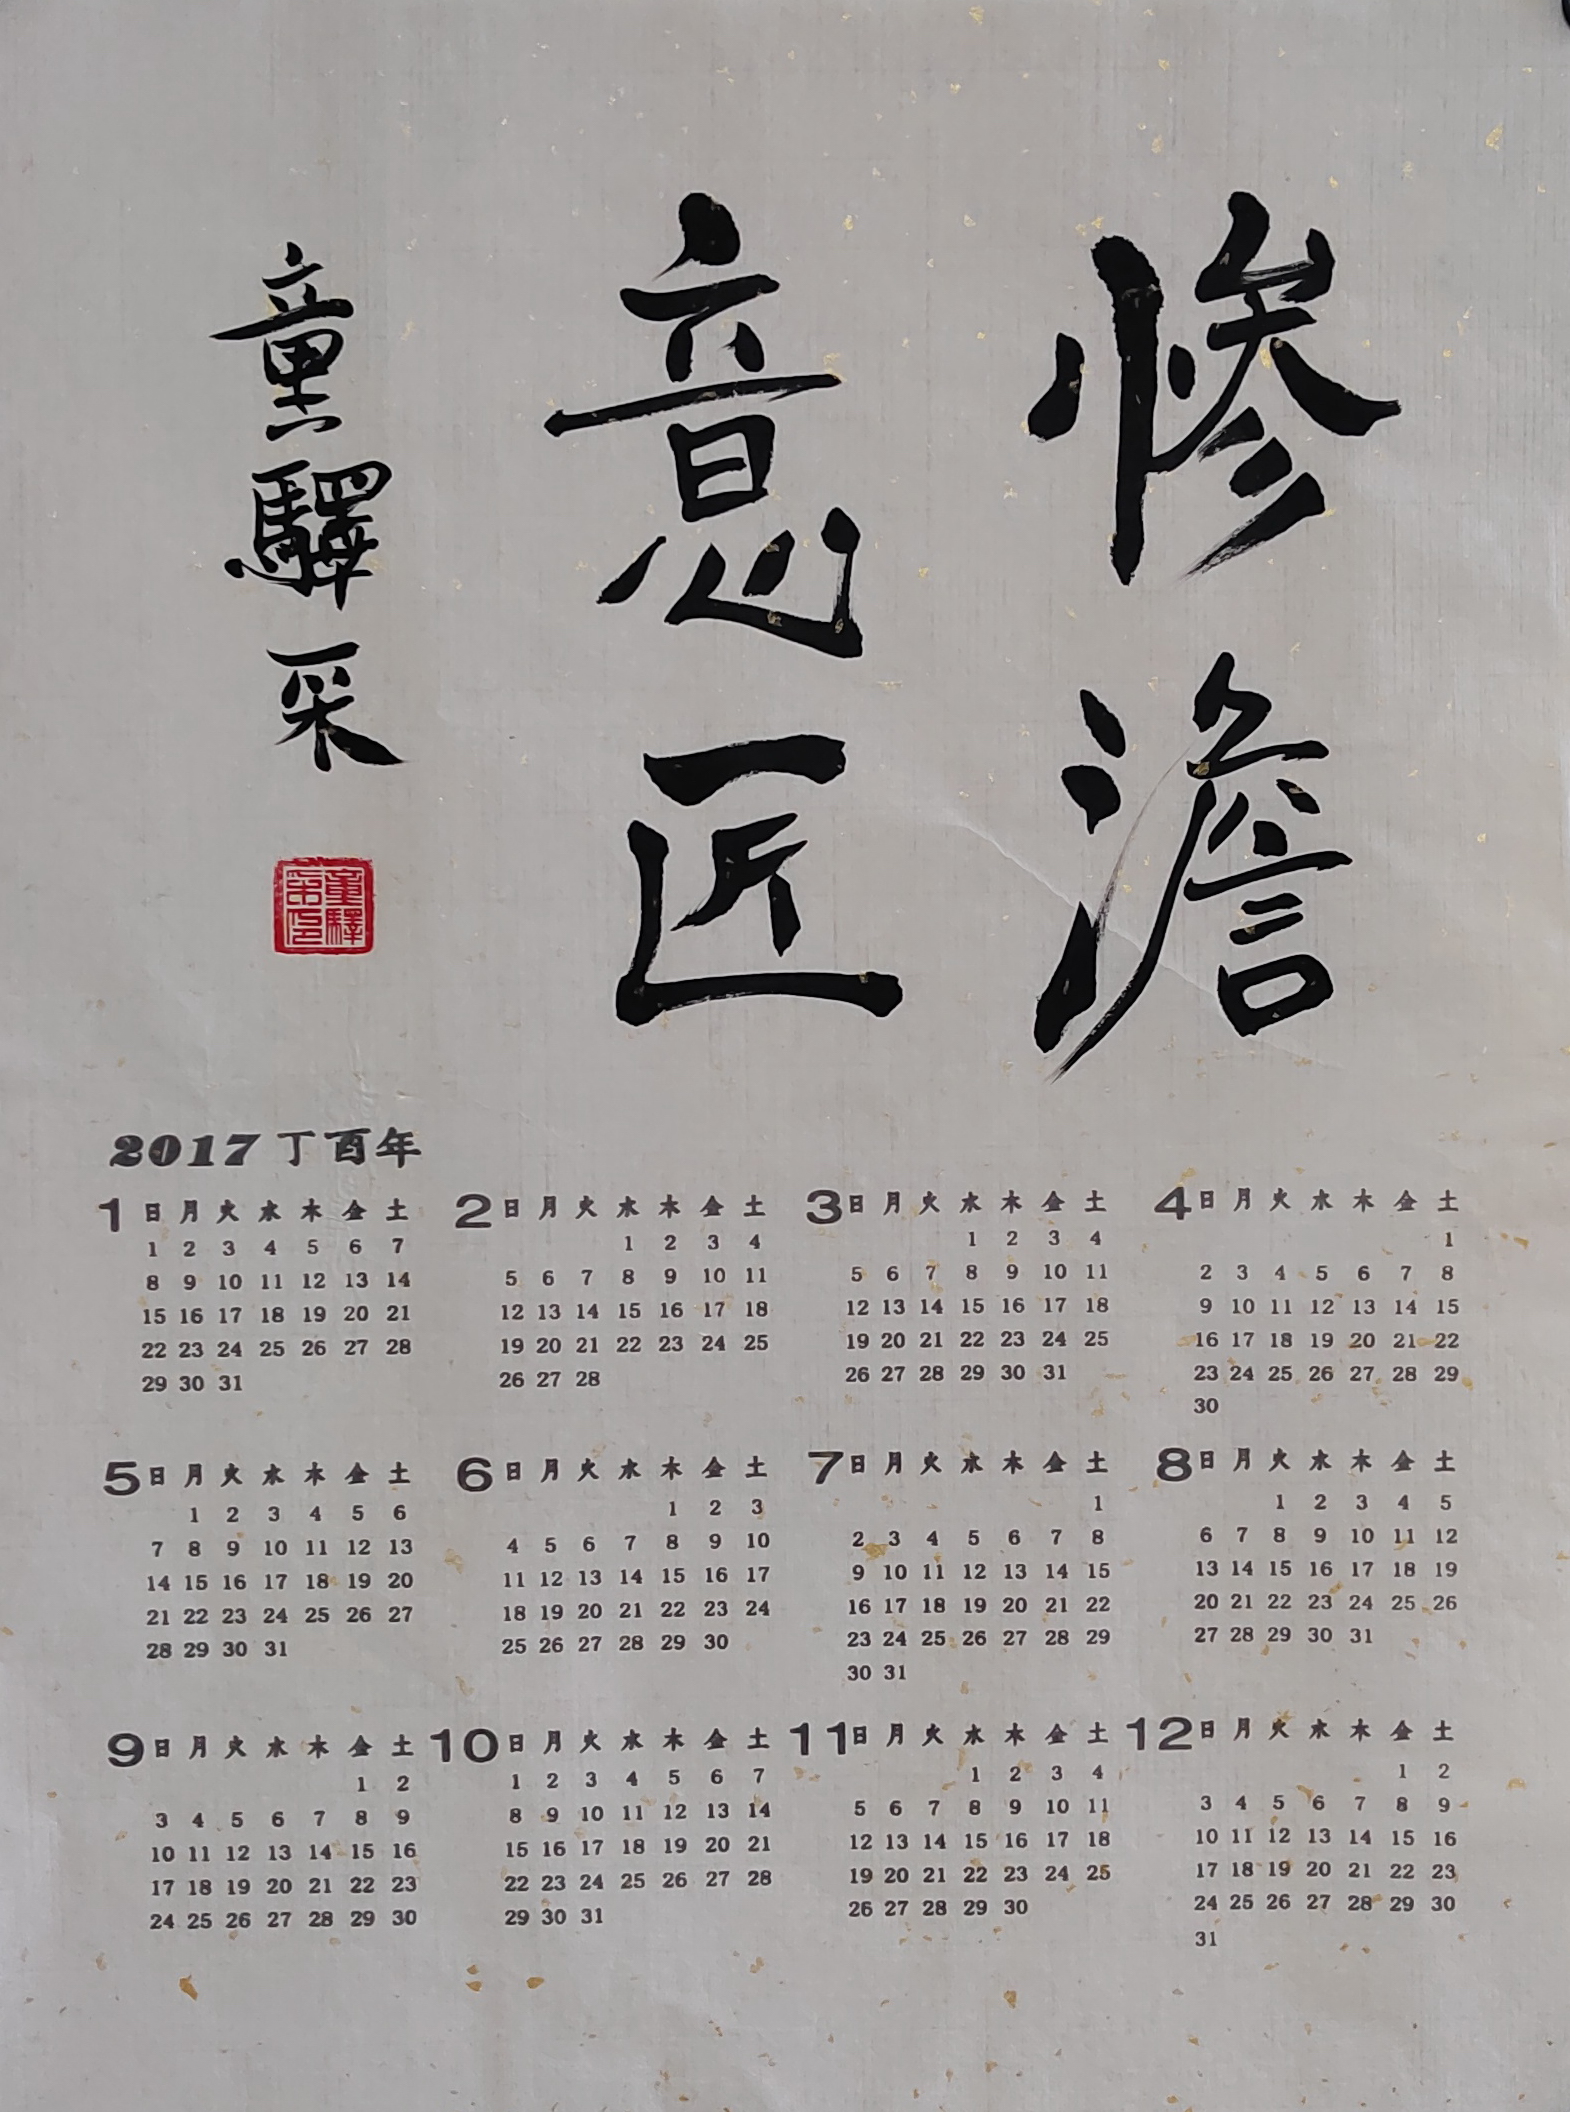 惨澹
意匠
童驛采
童驛
采印
2017 丁酉年
1 日 月 火 水 木 金 土
1 2 3 4 5 6 7
8 9 10 11 12 13 14
15 16 17 18 19 20 21
22 23 24 25 26 27 28
29 30 31
2 日 月 火 水 木 金 土
1 2 3 4
5 6 7 8 9 10 11
12 13 14 15 16 17 18
19 20 21 22 23 24 25
26 27 28
3 日 月 火 水 木 金 土
1 2 3 4
5 6 7 8 9 10 11
12 13 14 15 16 17 18
19 20 21 22 23 24 25
26 27 28 29 30 31
4 日 月 火 水 木 金 土
1
2 3 4 5 6 7 8
9 10 11 12 13 14 15
16 17 18 19 20 21 22
23 24 25 26 27 28 29
30
5 日 月 火 水 木 金 土
1 2 3 4 5 6
7 8 9 10 11 12 13
14 15 16 17 18 19 20
21 22 23 24 25 26 27
28 29 30 31
6 日 月 火 水 木 金 土
1 2 3
4 5 6 7 8 9 10
11 12 13 14 15 16 17
18 19 20 21 22 23 24
25 26 27 28 29 30
7 日 月 火 水 木 金 土
1
2 3 4 5 6 7 8
9 10 11 12 13 14 15
16 17 18 19 20 21 22
23 24 25 26 27 28 29
30 31
8 日 月 火 水 木 金 土
1 2 3 4 5
6 7 8 9 10 11 12
13 14 15 16 17 18 19
20 21 22 23 24 25 26
27 28 29 30 31
9 日 月 火 水 木 金 土
1 2
3 4 5 6 7 8 9
10 11 12 13 14 15 16
17 18 19 20 21 22 23
24 25 26 27 28 29 30
10 日 月 火 水 木 金 土
1 2 3 4 5 6 7
8 9 10 11 12 13 14
15 16 17 18 19 20 21
22 23 24 25 26 27 28
29 30 31
11 日 月 火 水 木 金 土
1 2 3 4
5 6 7 8 9 10 11
12 13 14 15 16 17 18
19 20 21 22 23 24 25
26 27 28 29 30
12 日 月 火 水 木 金 土
1 2
3 4 5 6 7 8 9
10 11 12 13 14 15 16
17 18 19 20 21 22 23
24 25 26 27 28 29 30
31